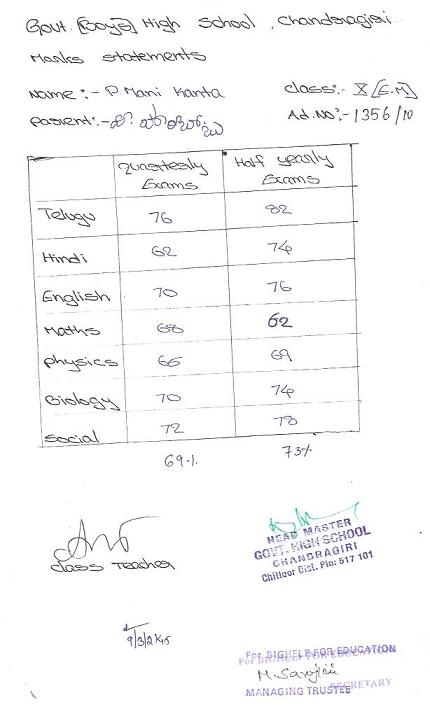 Govt. [Boys] High School, Chandragiri
Marks statements
Name :- P. Mani Kanta
class:- X [E.M]
Parent:-
Ad.No:- 1356/10
Quarterly Exams
Half yearly Exams
Telugu 76 82
Hindi 62 74
English 70 76
Maths 68 62
Physics 66 69
Biology 70 74
Social 72 78
69%
73%
class Teacher
HEAD MASTER
GOVT. HIGH SCHOOL
CHANDRAGIRI
Chittoor Dist. Pin: 517 101
For BIGHELP FOR EDUCATION
M. Sarojini
MANAGING TRUSTEE
SECRETARY